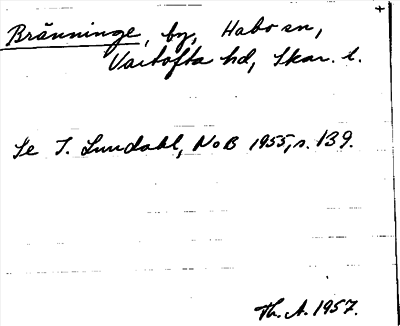 +
Bränninge, by, Habo sn,
Vartofta hd, Skar. l.
Se I. Lundahl, NoB 1955, s. 139.
Th. A. 1957.